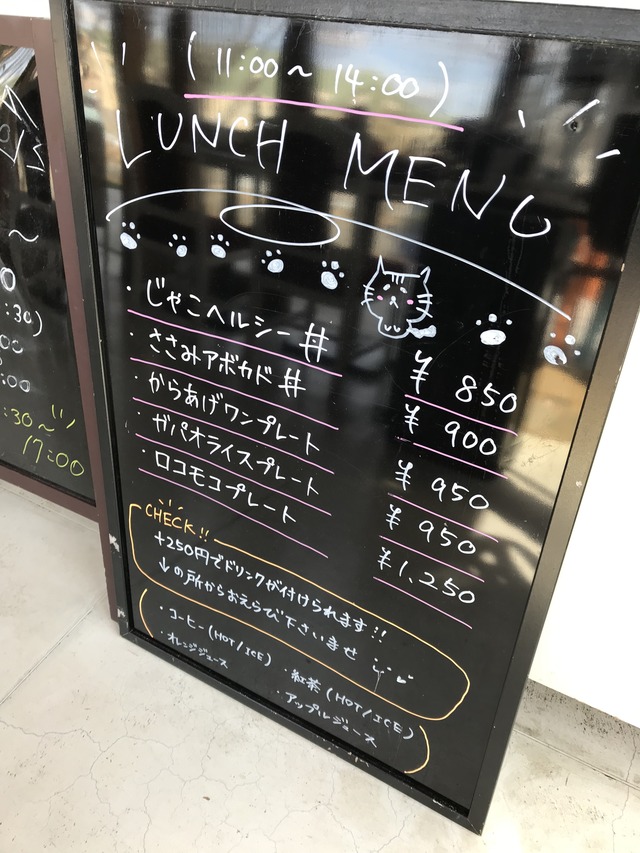 (11:00～14:00)
LUNCH MENU
・じゃこヘルシー丼 ¥850
・ささみアボカド丼 ¥900
・からあげワンプレート ¥950
・ガパオライスプレート ¥950
・ロコモコプレート ¥1,250
CHECK!!
+250円でドリンクが付けられます!!
↓の所からおえらび下さいませ
・コーヒー(HOT/ICE) ・紅茶(HOT/ICE)
・オレンジジュース ・アップルジュース
:30)
:30～
17:00